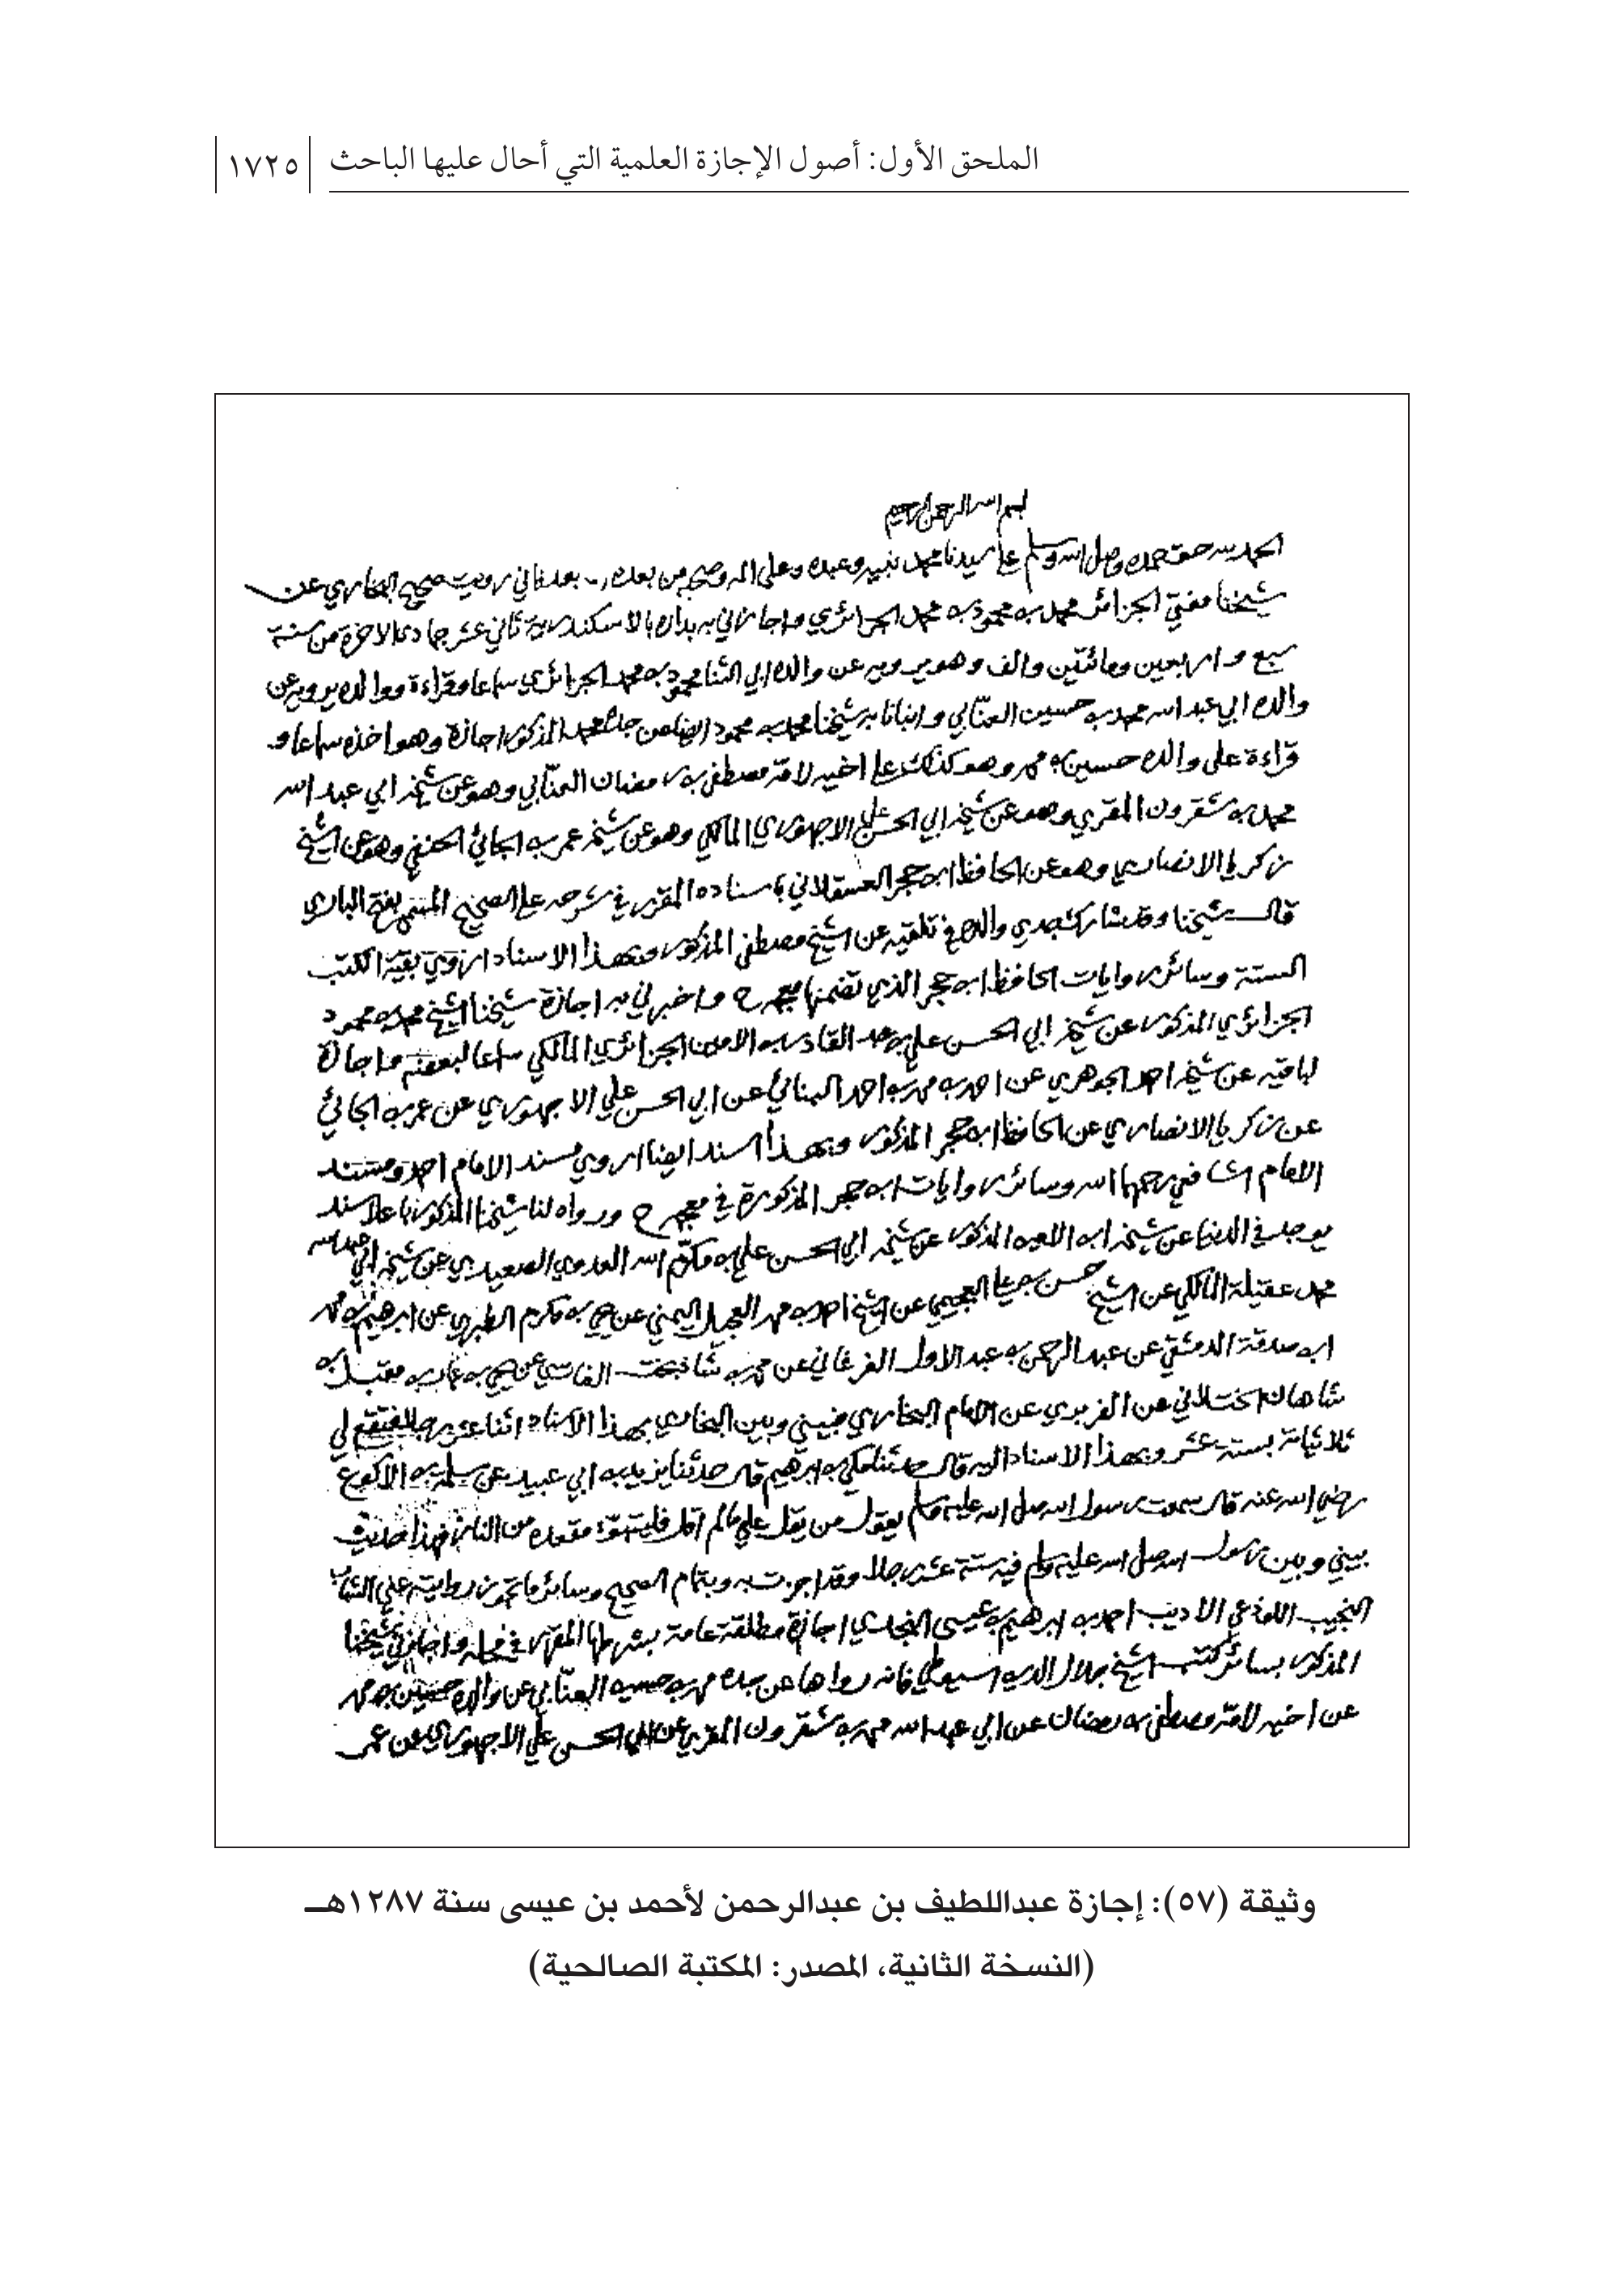 الملحق الأول: أصول الإجازة العلمية التي أحال عليها الباحث
١٧٢٥
بسم الله الرحمن الرحيم
الحمد لله حق حمده وصلى الله وسلم على سيدنا محمد نبيه وعبده وعلى اله وصحبه من بعده وبعد فاني رويت صحيح البخاري عن
شيخنا مفتي الجزائر محمد بن محمود بن محمد الجزائري واجازني به بداره بالاسكندرية ثاني عشر جمادى الاخرة من سنة
سبع واربعين ومائتين والف وهو يرويه عن والده ابي الثنا محمود بن محمد الجزائري سماعا وقراءة ووالده يرويه عن
والده ابي عبد الله محمد بن حسين العنّابي وانبانا به شيخنا محمد بن محمود ايضا عن جده محمد المذكور اجازة وهو اخذه سماعا و
قراءة على والده حسين بن محمد وهو كذلك على اخيه لامّه مصطفى بن رمضان العنّابي وهو عن شيخه ابي عبد الله
محمد بن شقرون المقري وهو عن شيخه ابي الحسن علي الاجهوري المالكي وهو عن شيخه عمر بن الجائي الحنفي وهو عن الشيخ
زكريا الانصاري وهو عن الحافظ ابن حجر العسقلاني باسناده المقرر في شرحه على الصحيح المسمى بفتح الباري
قال شيخنا وقد شاركت جدي والده في تلقيه عن الشيخ مصطفى المذكور وبهذا الاسناد اروي بقية الكتب
الستة وسائر روايات الحافظ ابن حجر الذي تضمنها معجمه ح واخبرني به اجازة شيخنا الشيخ محمد بن محمود
الجزائري المذكور عن شيخه ابي الحسن علي بن عبد القادر بن الامين الجزائري المالكي سماعا لبعضه واجازة
لباقيه عن شيخه احمد الجوهري عن احمد بن محمد بن احمد البنائي عن ابي الحسن علي الاجهوري عن عمر بن الجائي
عن زكريا الانصاري عن الحافظ ابن حجر المذكور وبهذا السند ايضا اروي مسند الامام احمد ومسند
الامام الشافعي رحمهما الله وسائر روايات ابن حجر المذكورة في معجمه ح ورواه لنا شيخنا المذكور باعلا سند
يوجد في الدنيا عن شيخه ابن الامين المذكور عن شيخه ابي الحسن علي بن مكرّم الله العدوي الصعيدي عن شيخه ابي عبد الله
محمد عقيلة المالكي عن الشيخ حسن بن علي العجيمي عن الشيخ احمد بن محمد العجل اليمني عن يحيى بن مكرم الطبري عن ابرهيم بن محمد
ابن صدقة الدمشقي عن عبد الرحمن بن عبد الاول الفرغاني عن محمد بن شاذبخت الفارسي عن يحيى بن عمار بن مقبل بن
شاهان الختلاني عن الفربري عن الامام البخاري فبيني وبين البخاري بهذا الاسناد اثنا عشر رجلا فتقع لي
ثلاثياته بستة عشر وبهذا الاسناد اليه قال حدثنا مكي بن ابرهيم قال حدثنا يزيد بن ابي عبيد عن سلمة بن الاكوع
رضي الله عنه قال سمعت رسول الله صلى الله عليه وسلم يقول من يقل علي ما لم اقل فليتبوّء مقعده من النار فهذا حديث
بيني وبين رسول الله صلى الله عليه وسلم فيه ستة عشر رجلا وقد اجزت به وبتمام الصحيح وسائر ما تجوز روايته علي الشاب
النجيب اللوذعي الاديب احمد بن ابرهيم بن عيسى النجدي اجازة مطلقة عامة بشرطها المقرر في محله واجازني شيخنا
المذكور بسائر كتب الشيخ جلال الدين السيوطي فانه رواها عن جده محمد بن حسين العنّابي عن والده حسين بن محمد
عن اخيه لامّه مصطفى بن رمضان عن ابي عبد الله محمد بن شقرون المقري عن ابي الحسن علي الاجهوري عن عمر
وثيقة (٥٧): إجازة عبداللطيف بن عبدالرحمن لأحمد بن عيسى سنة ١٢٨٧هـ
(النسخة الثانية، المصدر: المكتبة الصالحية)